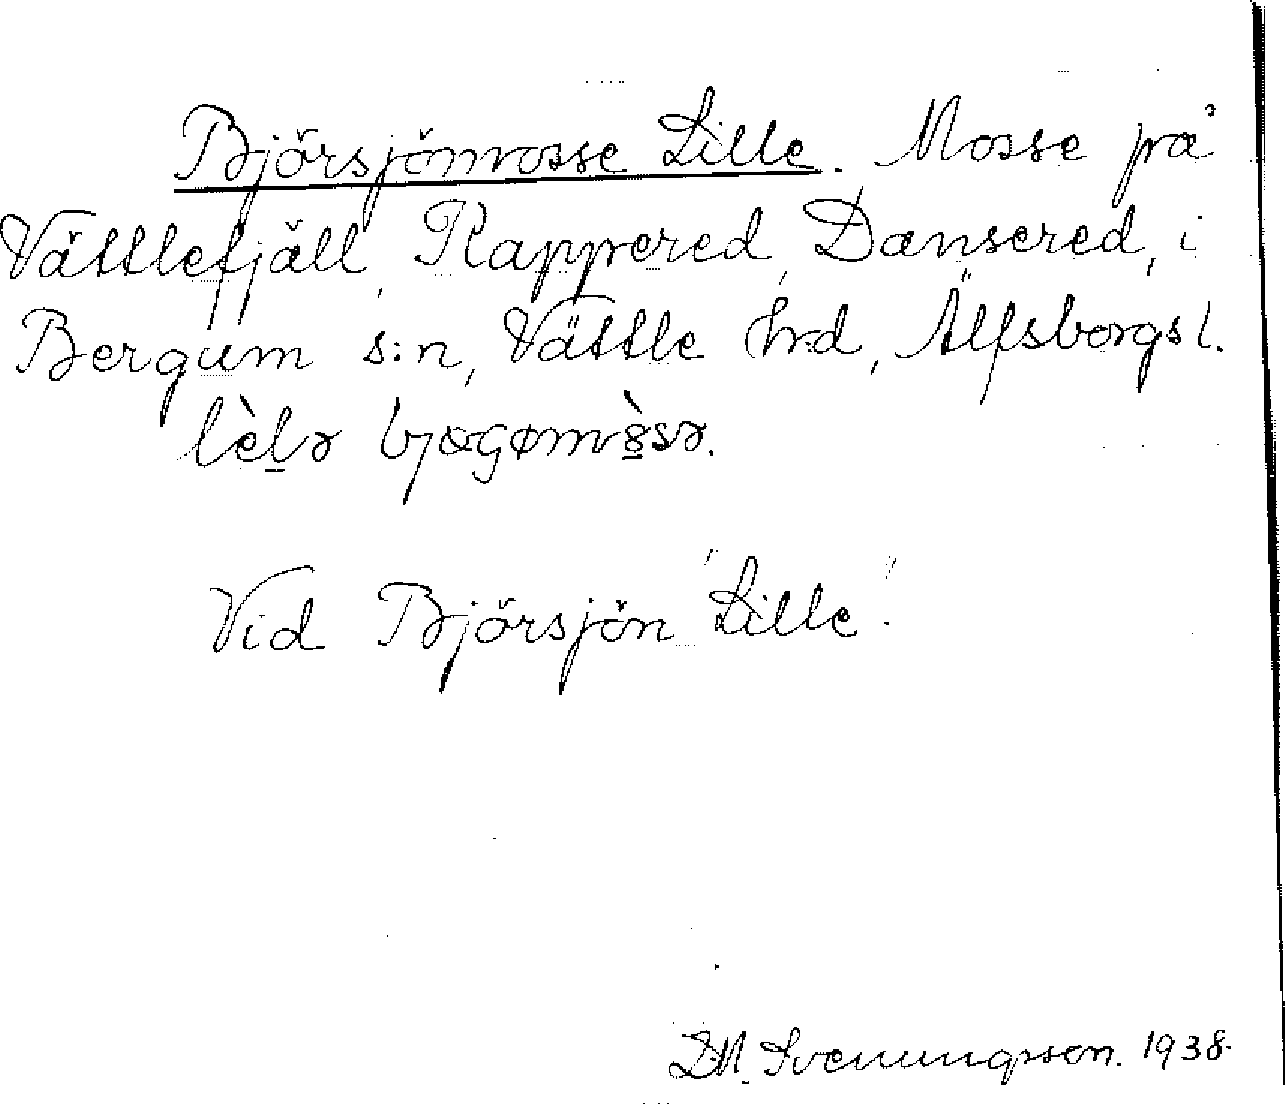 Björsjömosse Lille. Mosse på
Vättlefjäll, Rappered, Dansered, i
Bergum s:n, Vättle hrd, Älfsborgs l.
Vid Björsjön "Lille".
Svenungsson. 1938.